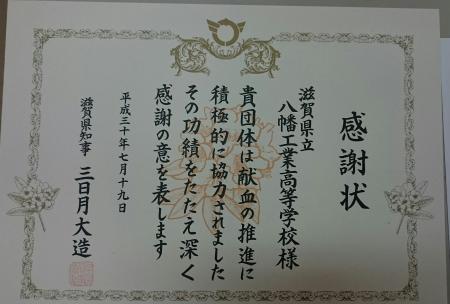 感謝状
滋賀県立
八幡工業高等学校様
貴団体は献血の推進に
積極的に協力されました
その功績をたたえ深く
感謝の意を表します
平成三十年七月十九日
滋賀県知事 三日月大造